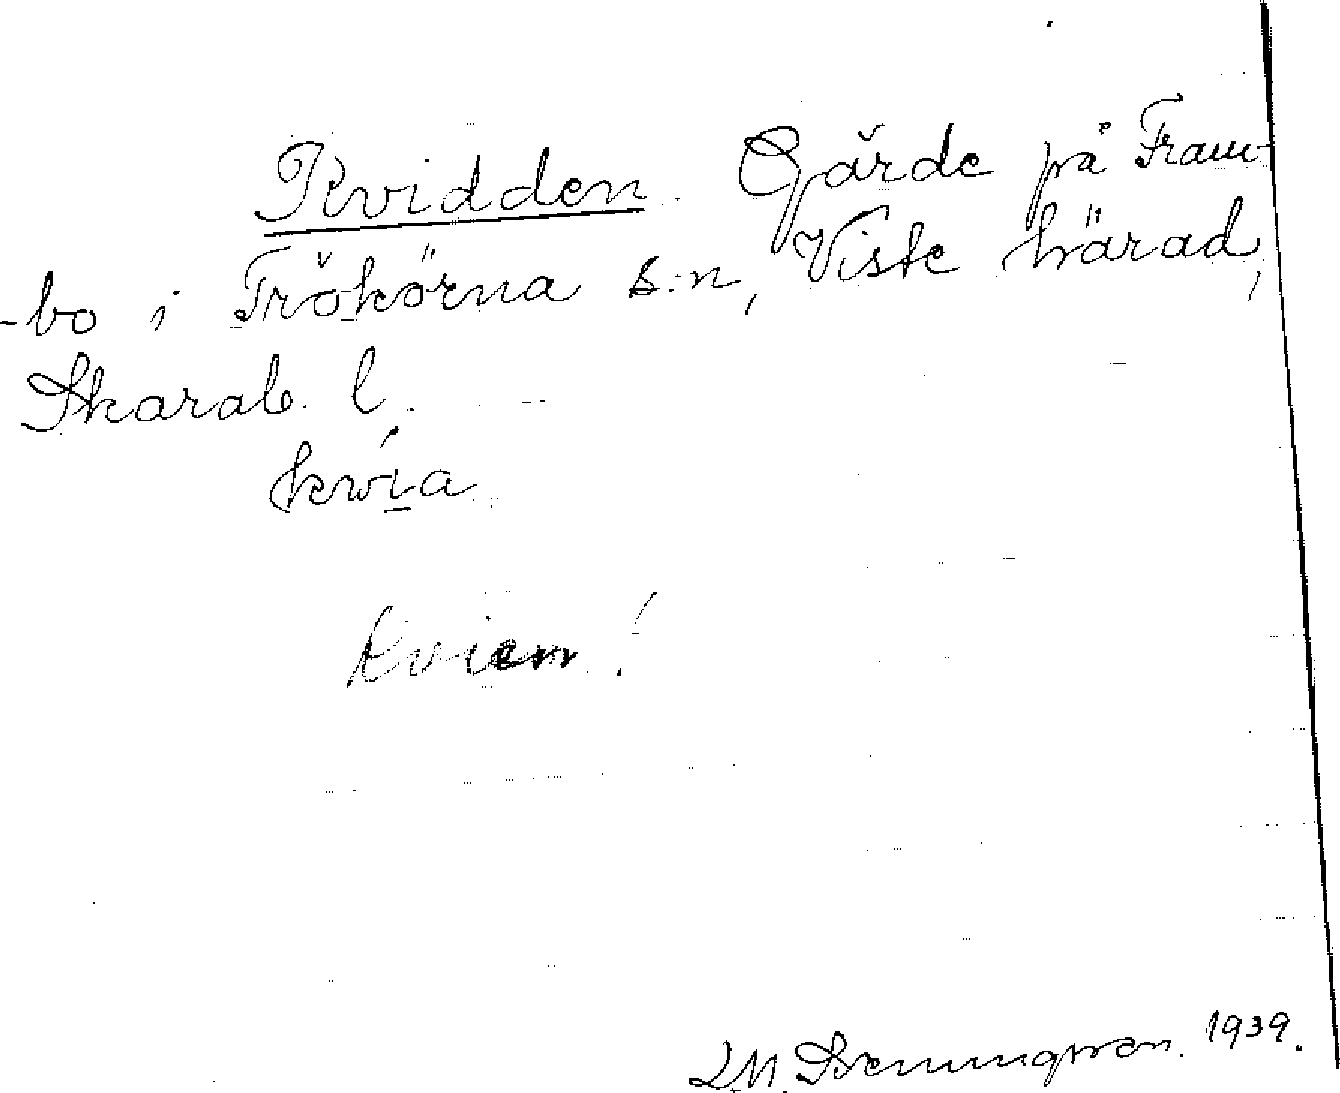 Kvidden. Gärde på Fram-
-bo i Trökörna s:n, Viste härad,
Skarab. l.
kwia
kvien!
1939.